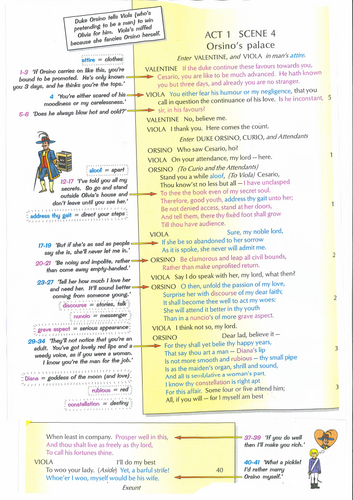 Duke Orsino tells Viola (who's
pretending to be a man) to win
Olivia for him. Viola's miffed
because she fancies Orsino herself.
ACT 1 SCENE 4
Orsino's palace
Enter VALENTINE, and VIOLA in man's attire.
attire = clothes
1-3 'If Orsino carries on like this, you're
bound to be promoted. He's only known
you 3 days, and he thinks you're the tops.'
4 'You're either scared of his
moodiness or my carelessness.'
5-6 'Does he always blow hot and cold?'
VALENTINE If the duke continue these favours towards you,
Cesario, you are like to be much advanced. He hath known
you but three days, and already you are no stranger.
VIOLA You either fear his humour or my negligence, that you
call in question the continuance of his love. Is he inconstant, 5
sir, in his favours?
VALENTINE No, believe me.
VIOLA I thank you. Here comes the count.
Enter DUKE ORSINO, CURIO, and Attendants
ORSINO Who saw Cesario, ho?
VIOLA On your attendance, my lord – here.
ORSINO (To Curio and the Attendants)
Stand you a while aloof, (To Viola) Cesario,
Thou know'st no less but all – I have unclasped
To thee the book even of my secret soul.
Therefore, good youth, address thy gait unto her;
Be not denied access, stand at her doors,
And tell them, there thy fixed foot shall grow
Till thou have audience.
aloof = apart
12-17 'I've told you all my
secrets. Go and stand
outside Olivia's house and
don't leave until you see her.'
address thy gait = direct your steps
VIOLA Sure, my noble lord,
If she be so abandoned to her sorrow
As it is spoke, she never will admit me.
17-19 'But if she's as sad as people
say she is, she'll never let me in.'
20-21 'Be noisy and impolite, rather
than come away empty-handed.'
ORSINO Be clamorous and leap all civil bounds,
Rather than make unprofited return.
VIOLA Say I do speak with her, my lord, what then?
23-27 'Tell her how much I love her
and need her. It'll sound better
coming from someone young.'
discourse = stories, talk
nuncio = messenger
grave aspect = serious appearance
ORSINO O then, unfold the passion of my love,
Surprise her with discourse of my dear faith;
It shall become thee well to act my woes:
She will attend it better in thy youth
Than in a nuncio's of more grave aspect.
VIOLA I think not so, my lord.
ORSINO Dear lad, believe it –
For they shall yet belie thy happy years,
That say thou art a man – Diana's lip
Is not more smooth and rubious – thy small pipe
Is as the maiden's organ, shrill and sound,
And all is semblative a woman's part.
I know thy constellation is right apt
For this affair. Some four or five attend him;
All, if you will – for I myself am best
29-34 'They'll not notice that you're an
adult. You've got lovely red lips and a
weedy voice, as if you were a woman.
I know you're the man for the job.'
Diana = goddess of the moon (and love)
rubious = red
constellation = destiny
When least in company. Prosper well in this,
And thou shalt live as freely as thy lord,
To call his fortunes thine.
VIOLA I'll do my best
To woo your lady. (Aside) Yet, a barful strife! 40
Whoe'er I woo, myself would be his wife.
Exeunt
37-39 'If you do well
then I'll make you rich.'
40-41 'What a pickle!
I'd rather marry
Orsino myself.'